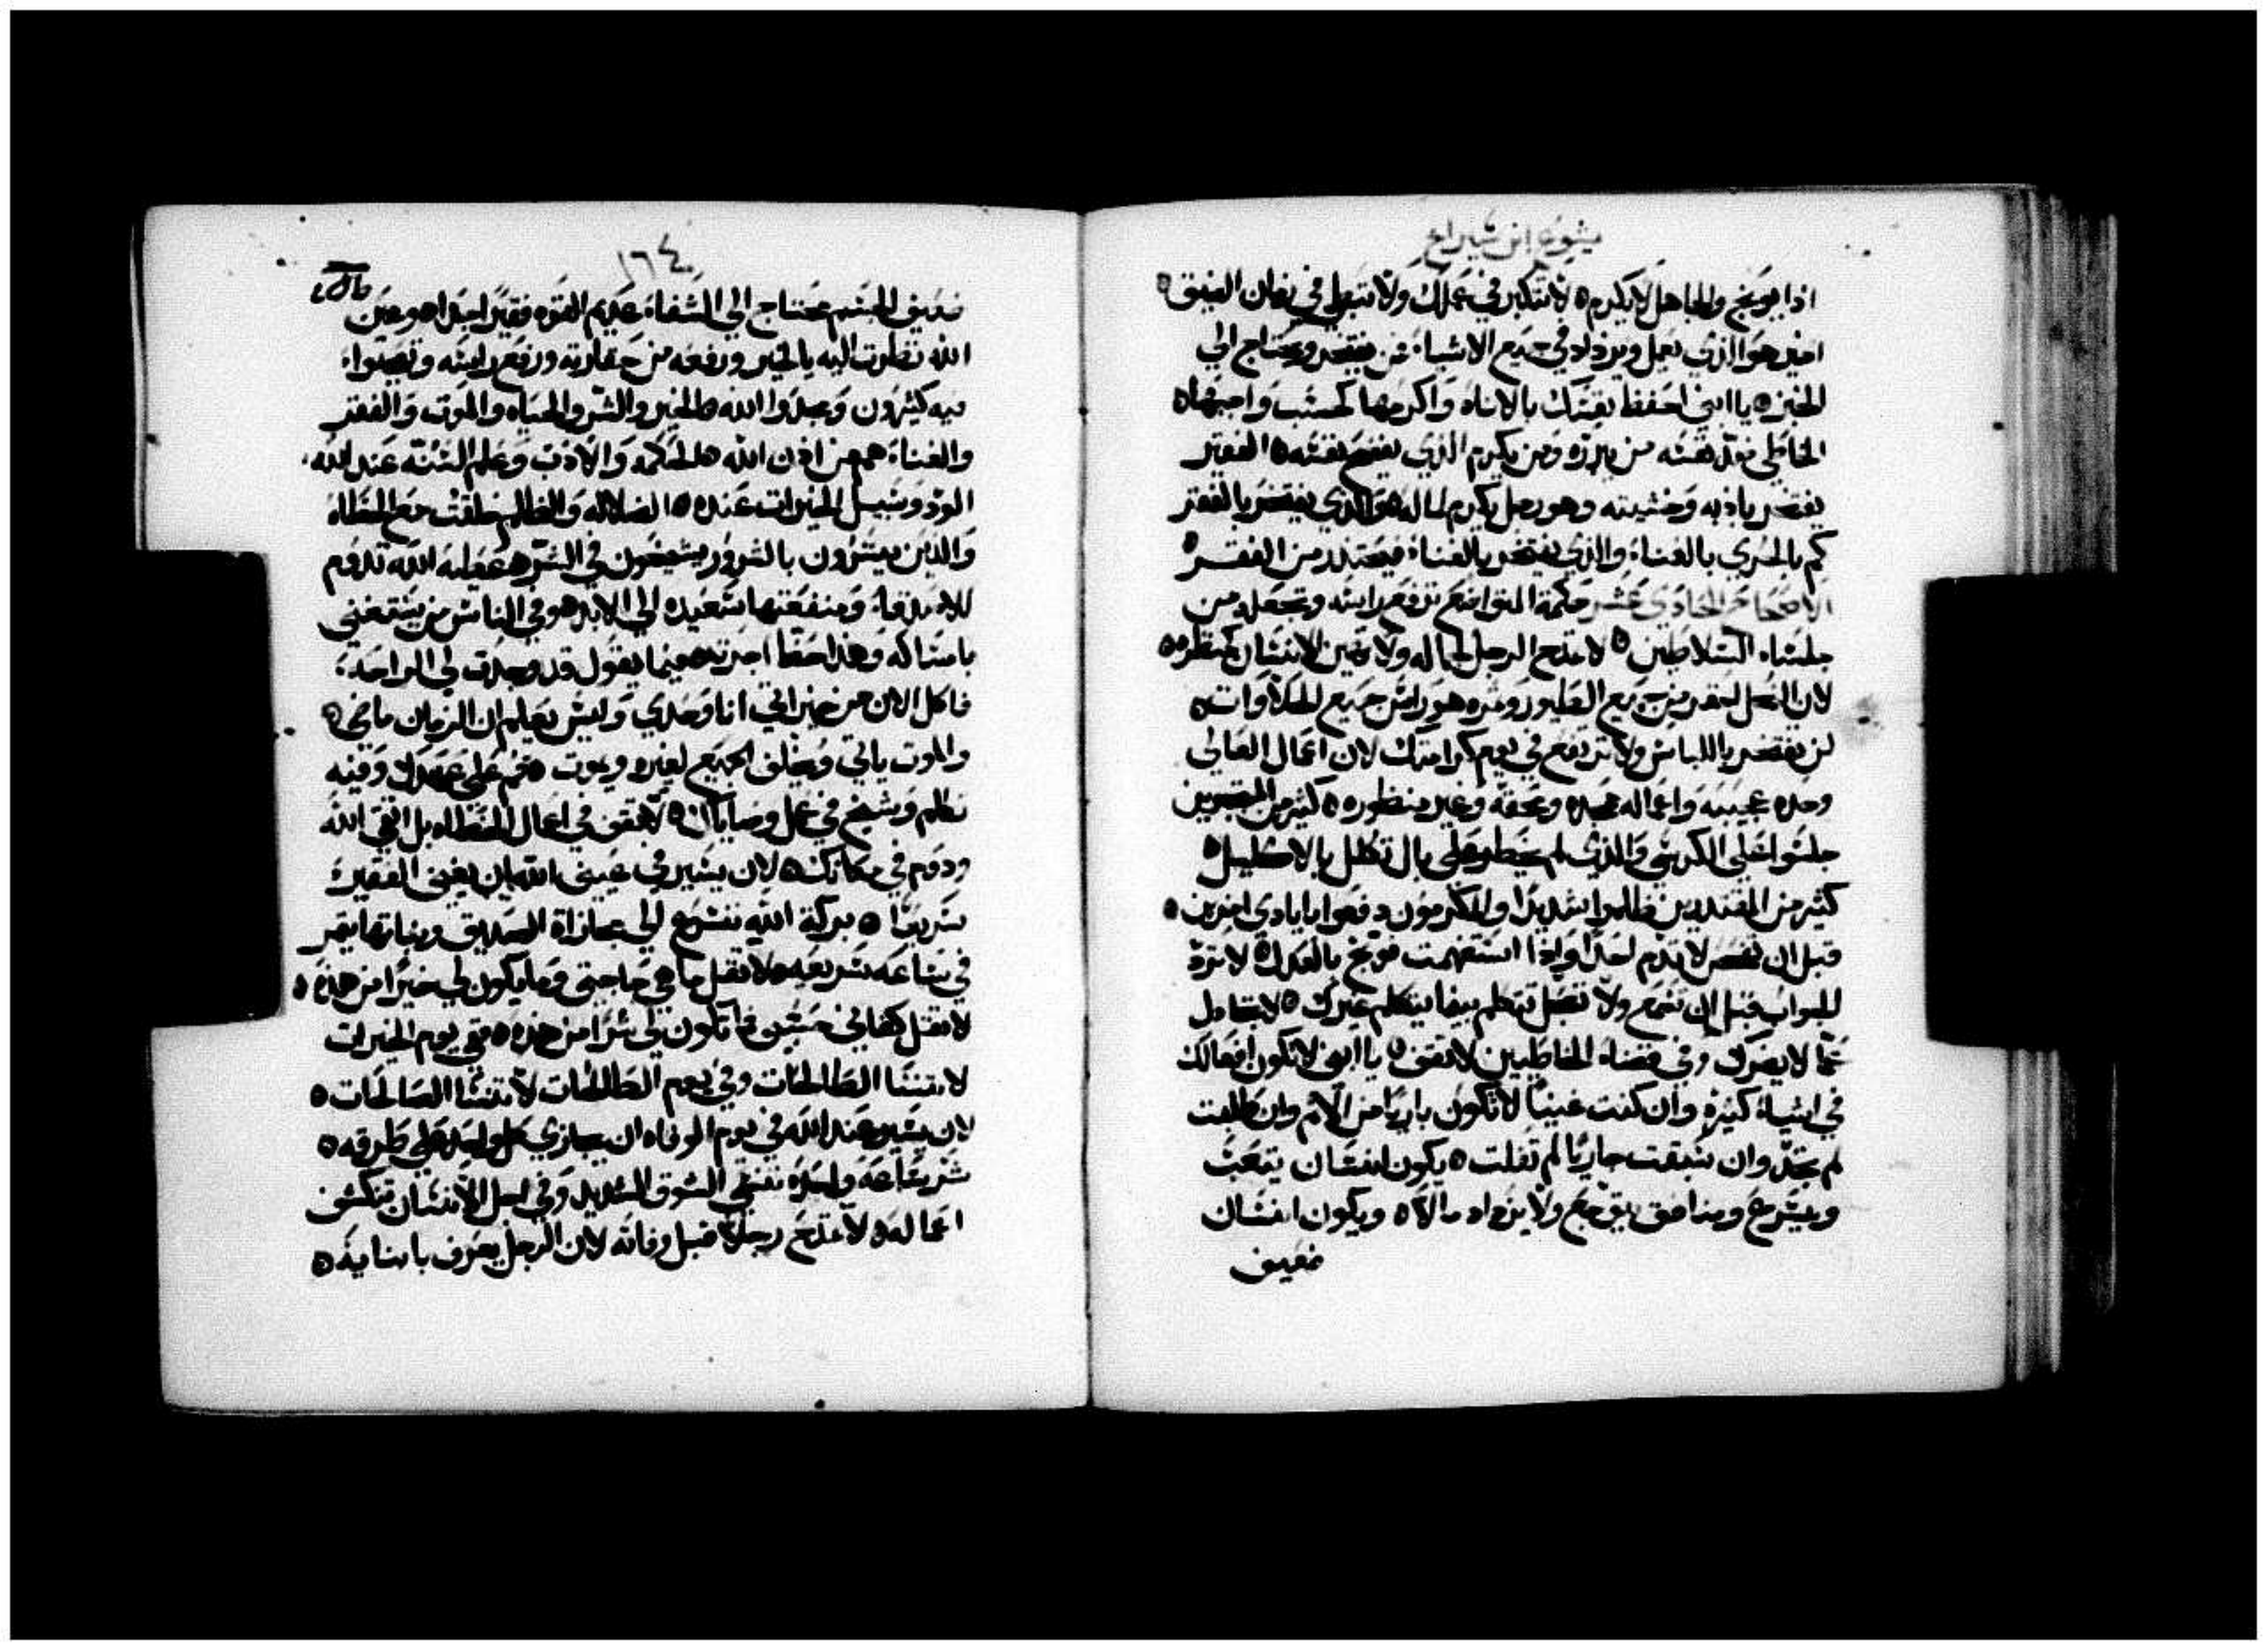 يشوع ابن شيراخ
اذا يوبخ والجاهل لا يكرم ٥ لا تتكبر في عملك ولا تتبطى في زمان الضيق ٥
اخير هو الذي يعمل ويزداد في جميع الاشياء من يفتخر ويحتاج الى
الخبز ٥ يا ابني احفظ نفسك بالاناه واكرمها كحسب واجبها ٥
الخاطي نفسه من يبرره ومن يكرم الذي يفضح نفسه ٥ الفقير
يفتخر بادبه وخشيته وهو رجل يكرم لماله ٥ والذي يفتخر بالفقر
كم بالحري بالغناء والذي يفتخر بالغناء فيحتذر من الفقر ٥
الاصحاح الحادي عشر حكمة المتواضع ترفع راسه وتجعله من
جلساء السلاطين ٥ لا تمدح الرجل لجماله ولا تهين الانسان لمنظره ٥
لان النحل لصغير من جميع الطيور وثمره هو راس جميع الحلاوات ٥
لن يفتخر باللباس ولا ترتفع في يوم كرامتك لان اعمال العالي
وحده عجيبه واعماله مجيده ومخفه وغير منظوره ٥ كثير من المتجبرين
جلسوا على الكرسي والذي لم يخطر على بال تكلل بالاكليل ٥
كثير من المقتدرين ظلموا شديدا والمكرمون دفعوا بايادي اخرين ٥
قبل ان تفحص لا تذم احدا واذا استفهمت فوبخ بالعدل ٥ لا ترد
الجواب قبل ان تسمع ولا تعجل تتكلم بينما يتكلم غيرك ٥ لا تجادل
عما لا يضرك وفي قضاء الخاطيين لا تقف ٥ يا ابني لا تكون افعالك
في اشياء كثيره وان كنت غنيا لا تكون باريا من الاثم وان طلبت
لم تجد وان سبقت جاريا لم تفلت ٥ يكون انسان يتعب
ويسرع ومنافق يتوجع ولا يزداد مالا ٥ ويكون انسان
ضعيف
١٦٤
ضعيف الجسم محتاج الى الشفاء عديم القوه فقيرا جدا ٥ وعين
الله نظرت اليه بالخير ورفعه من حقارته ورفع راسه وتعجبوا
فيه كثيرون ومجدوا الله ٥ الخير والشر والحياه والموت والفقر
والغناء هم من اذن الله ٥ الحكمه والادب وعلم السنه عند الله
الود وسبيل الخيرات عنده ٥ الضلاله والظلام خلقت مع الخطاه
والذين يسرون بالشرور يشيخون في الشر ٥ عطية الله تدوم
للاصدقاء ومنفعتها سعيده الى الابد ٥ وفي الناس من يستغنى
بامساكه وهذا حظ اجرته ٥ بينما يقول قد وجدت لي الراحه
فاكل الان من خيراتي انا وحدي وليس يعلم ان الزمان ماضي ٥
والموت ياتي ويخلف الجميع لغيره ويموت ٥ قم على عهدك وفيه
تكلم وشيخ في عمل وصاياك ٥ لا تقف في اعمال الخطاه بل اتقي الله
ودوم في مكانك ٥ لان يسير في عيني الله ان يغني الفقير
سريعا ٥ بركة الله تسرع الى مجازاة الصديق ونباتها يثمر
في ساعه سريعه ٥ لا تقل ما هي حاجتي وما يكون لي خيرا من هذه ٥
لا تقل كفاني حسبي فما تكون لي شرا من هذه ٥ في يوم الخيرات
لا تنسا الطالحات وفي يوم الطالحات لا تنسا الصالحات ٥
لان يسير عند الله في يوم الوفاه ان يجازي كل واحد على طرقه ٥
شر ساعه واحده تنسي الشوق الشديد وفي اجل الانسان تنكشف
اعماله ٥ لا تمدح رجلا قبل وفاته لان الرجل يعرف بابنايه ٥